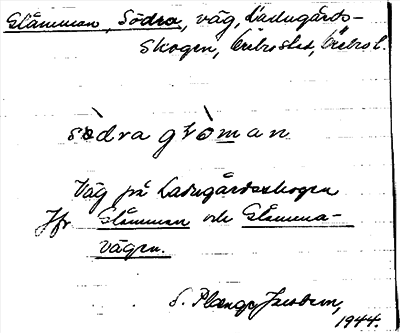 Glåmman, Södra, väg, Ladugårds-
skogen, Örebro stad, Örebro l.
sὸdra glὸman
Väg på Ladugårdsskogen
Jfr Glåmman och Glåmma-
vägen.
S. Plænge Jacobson,
1944.